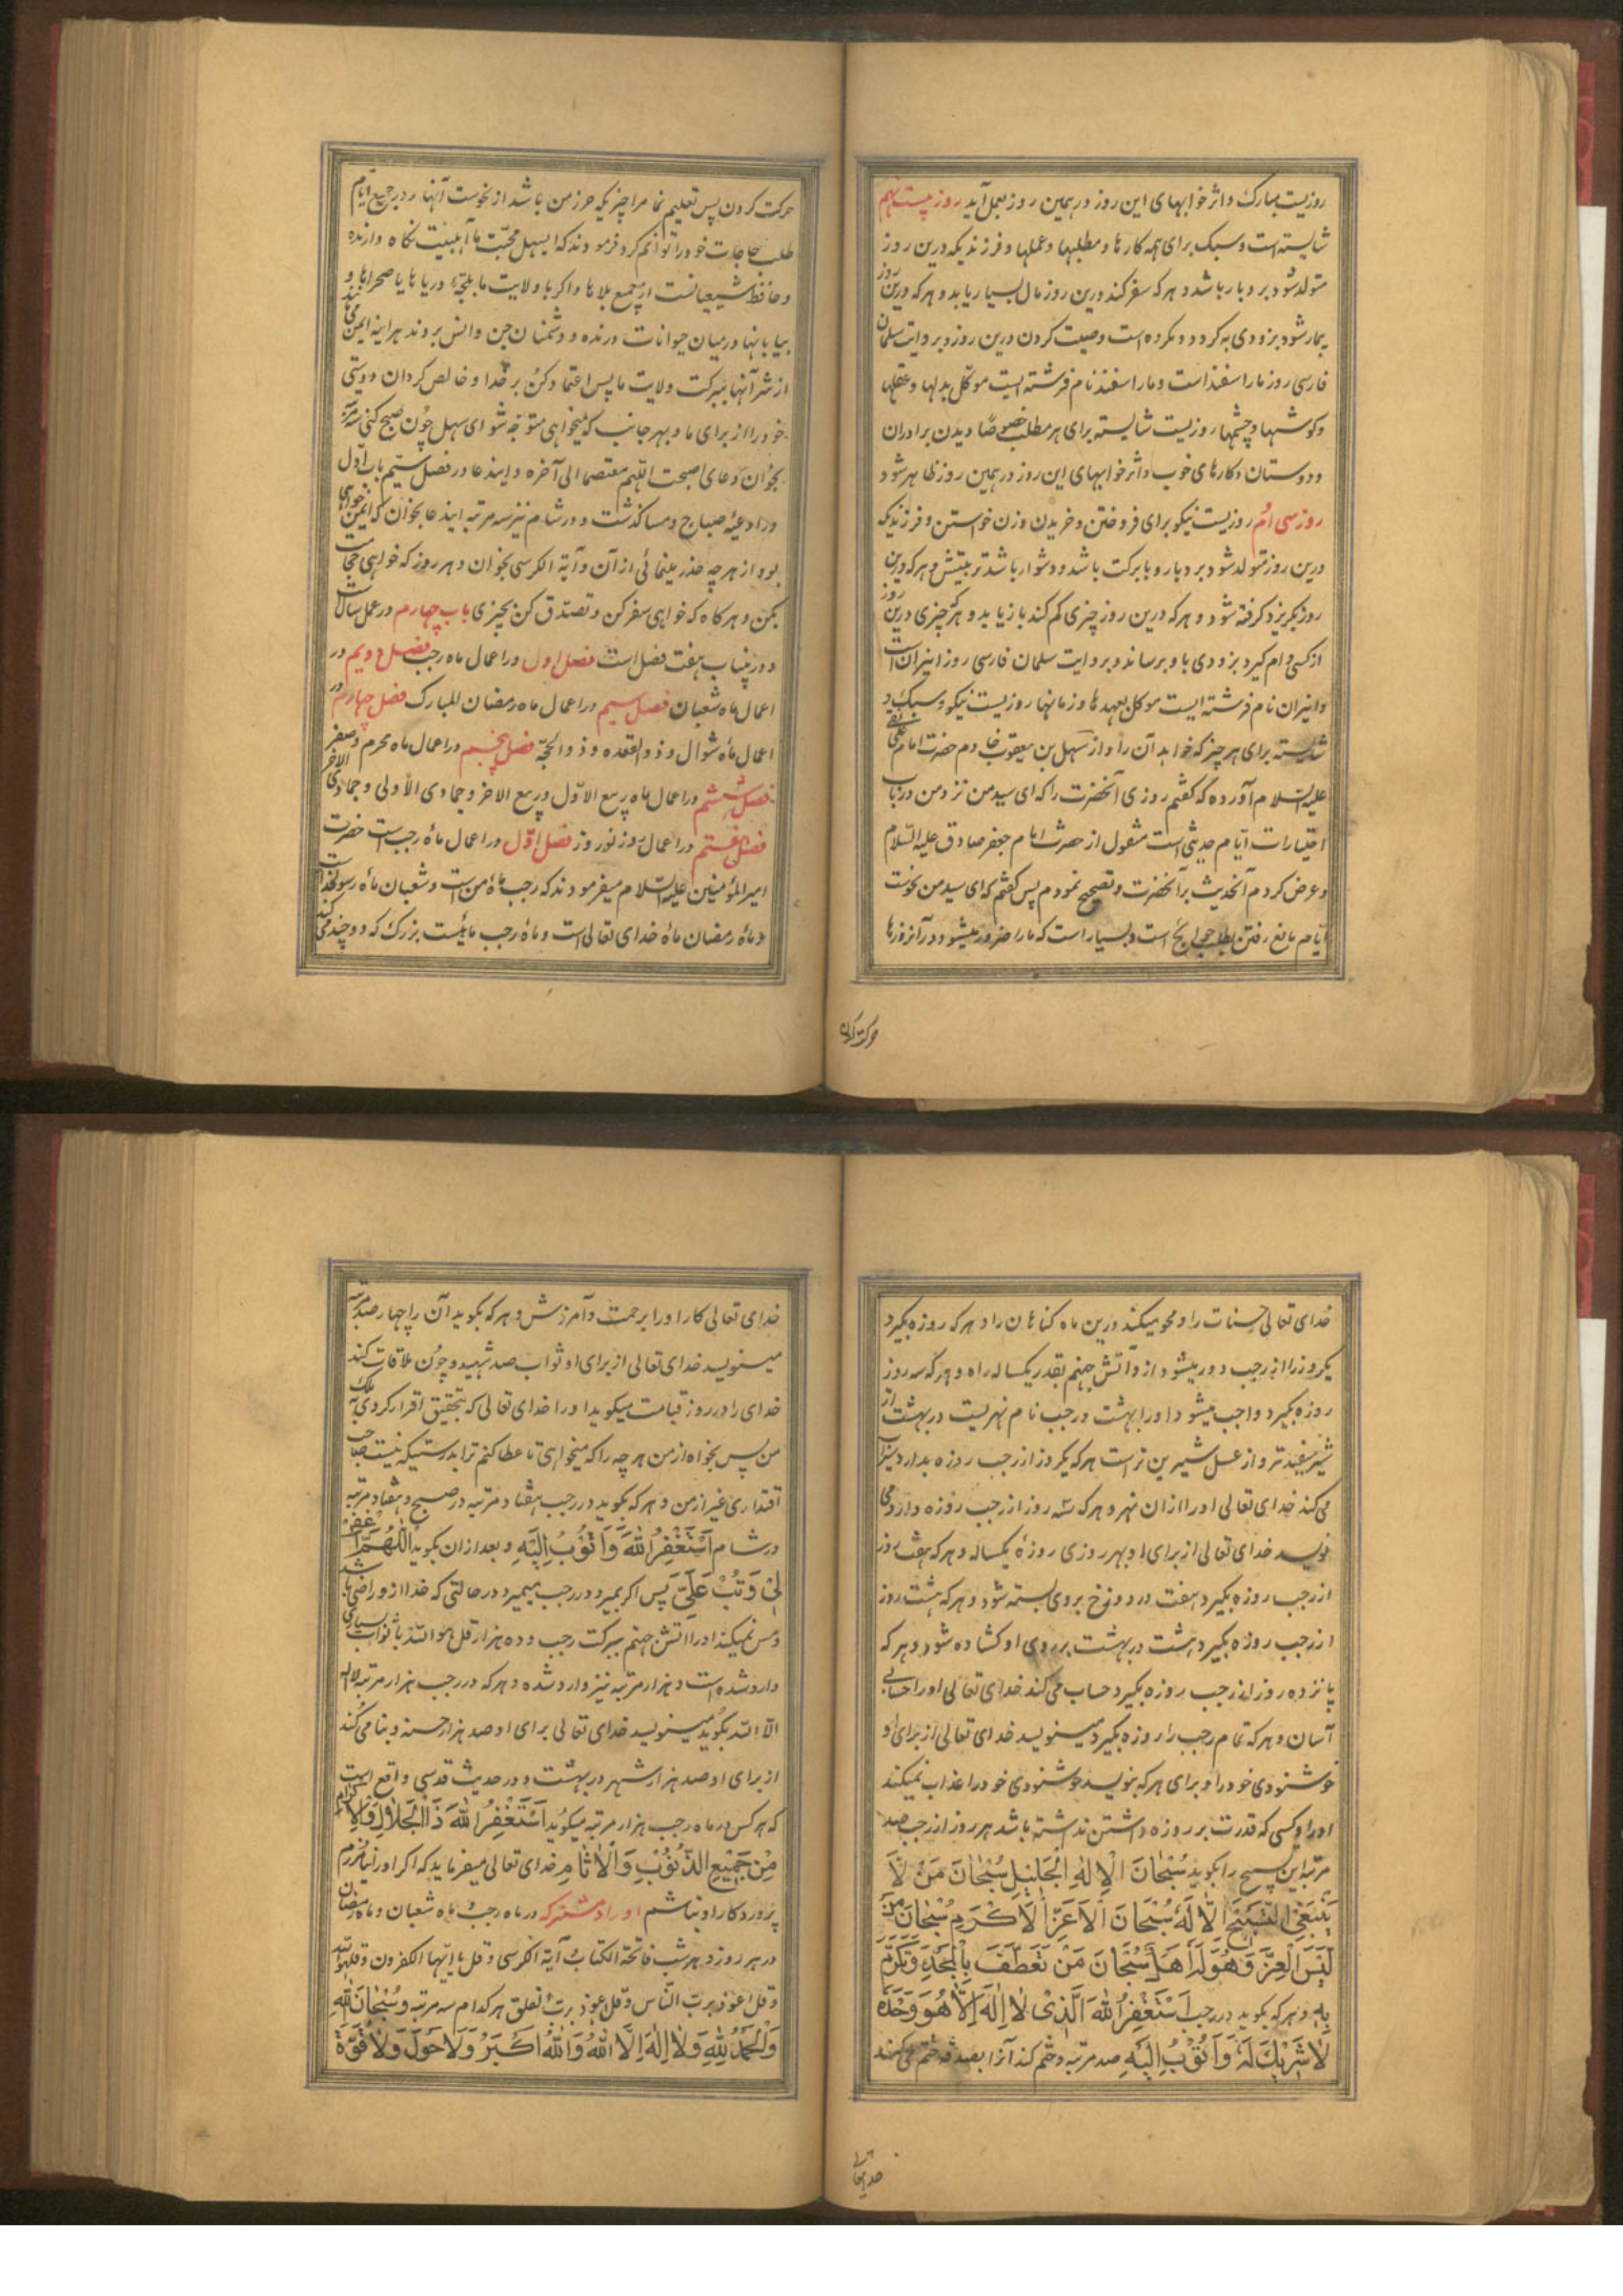 روزیست مبارک و اثر خوابهای این روز در همین روز بعمل آید روز بیست نهم
شایسته است و سبک برای همه کارها و مطلبها و عملها و فرزندیکه درین روز
متولد شود بردبار باشد و هر که سفر کند درین روز مال بسیار یابد و هر که درین روز
بیمار شود بزودی به گردد و مکروه است وصیت کردن درین روز و بروایت سلمان
فارسی روز ماراسفند است و ماراسفند نام فرشته ایست موکل بدلها و عقلها
و کوشها و چشمها روزیست شایسته برای هر مطلب خصوصًا دیدن برادران
و دوستان و کارهای خوب و اثر خوابهای این روز در همین روز ظاهر شود
روز سی ام روزیست نیکو برای فروختن و خریدن و زن خواستن و فرزندیکه
درین روز متولد شود بردبار و با برکت باشد و دشوار باشد تربیتش و هر که درین
روز بگریزد گرفته شود و هر که درین روز چیزی گم کند باز یابد و هر که چیزی درین روز
از کسی وام گیرد بزودی باو برساند و بروایت سلمان فارسی روز انیران است
و انیران نام فرشته ایست موکل بعهدها و زمانها روزیست نیکو و سبک و
شایسته برای هر چیز که خواهد آن را و از سهل بن یعقوب خادم حضرت امام علی نقی
علیه السلام آورده که گفتم روزی آنحضرت را که ای سید من نزد من در باب
اختیارات ایّام حدیثی است منقول از حضرت امام جعفر صادق علیه السّلام
و عرض کردم آنحدیث بر آنحضرت و تصحیح نمودم پس گفتم که ای سید من نحوست
ایّام مانع رفتن بطلب حوایج است و بسیار است که ما را ضرور میشود در آنروزها
حرکت کردن
حرکت کردن پس تعلیم نما مرا چیزیکه حرز من باشد از نحوست آنها و در جمیع ایّام
طلب حاجات خود را توانم کرد فرمودند که ای سهل محبّت ما اهلبیت نگاه دارنده
و حافظ شیعیانست از جمیع بلاها و اگر با ولایت ما بلجّهٔ دریاها یا صحراها و
بیابانها در میان حیوانات درنده و دشمنان جن و انس بروند هر اینه ایمن می مانند
از شر آنها ببرکت ولایت ما پس اعتماد کن بر خدا و خالص گردان دوستی
خود را از برای ما و بهر جانب که میخواهی متوجّه شو ای سهل چون صبح کنی سه مرتبه
بخوان دعای اصبحت اللهم معتصما الی آخره و ایندعا در فصل سیّم باب اول
در ادعیهٔ صباح و مسا گذشت و در شام نیز سه مرتبه ایندعا بخوان که ایمن خواهی
بود از هر چه حذر مینمائی از آن و آیة الکرسی بخوان و هر روز که خواهی حجامت
بکن و هر گاه که خواهی سفر کن و تصدّق کن بچیزی باب چهارم در عمل سالست
و درینباب هفت فصل است فصل اول در اعمال ماه رجب فصل دویم در
اعمال ماه شعبان فصل سیم در اعمال ماه رمضان المبارک فصل چهارم در
اعمال ماه شوال و ذو القعده و ذو الحجّه فصل پنجم در اعمال ماه محرم و صفر
فصل ششم در اعمال ماه ربیع الاوّل و ربیع الاخر و جمادی الاولی و جمادی الاخر
فصل هفتم در اعمال روز نوروز فصل اوّل در اعمال ماه رجب است حضرت
امیر المؤمنین علیه السّلام میفرمودند که رجب ماه من است و شعبان ماه رسولخدا است
و ماه رمضان ماه خدای تعالی است و ماه رجب ماهیست بزرک که دو چندمی کند
خدای تعالی حسنات را و محو میکند درین ماه گناهان را و هر که روزه بگیرد
یکروز را از رجب دور میشود از و آتش جهنم بقدر یکساله راه و هر که سه روز
روزه بگیرد واجب میشود او را بهشت و رجب نام نهریست در بهشت از
شیر سفید تر و از عسل شیرین تر است هر که یکروز از رجب روزه بدارد سیراب
می کند خدای تعالی او را ازان نهر و هر که سه روز از رجب روزه دارد می
نویسد خدای تعالی از برای او بهر روزی روزهٔ یکساله و هر که هفت روز
از رجب روزه بگیرد هفت در دوزخ بروی بسته شود و هر که هشت روز
از رجب روزه بگیرد هشت در بهشت بر روی او گشاده شود و هر که
پانزده روز از رجب روزه بگیرد حساب می کند خدای تعالی او را حسابی
آسان و هر که تمام رجب را روزه بگیرد مینویسد خدای تعالی از برای او
خوشنودی خود را و برای هر که بنویسد خوشنودی خود را عذاب نمیکند
او را و کسی که قدرت بر روزه داشتن نداشته باشد هر روز از رجب صد
مرتبه این تسبیح را بگوید سُبْحَانَ الْاِلٰهِ الْجَلِیْلِ سُبْحَانَ مَنْ لَا
یَنْبَغِی التَّسْبِیْحُ اِلَّا لَهُ سُبْحَانَ الْاَعَزِّ الْاَکْرَمِ سُبْحَانَ مَنْ
لَبِسَ الْعِزَّ وَهُوَ لَهُ اَهْلٌ سُبْحَانَ مَنْ تَعَطَّفَ بِالْمَجْدِ وَتَکَرَّمَ
بِهِ و هر که بگوید در رجب اَسْتَغْفِرُ اللّٰهَ الَّذِیْ لَا اِلٰهَ اِلَّا هُوَ وَحْدَهُ
لَا شَرِیْکَ لَهُ وَاَتُوْبُ اِلَیْهِ صد مرتبه و ختم کند آنرا بصدقه ختم می کند
خدایتعالی
خدای تعالی کار او را برحمت و آمرزش و هر که بگوید آن را چهار صد مرتبه
مینویسد خدای تعالی از برای او ثواب صد شهید و چون ملاقات کند
خدای را در روز قیامت میگوید او را خدای تعالی که بتحقیق اقرار کردی به ملک
من پس بخواه از من هر چه را که میخواهی تا عطا کنم ترا بدرستیکه نیست صاحب
اقتداری غیر از من و هر که بگوید در رجب هفتاد مرتبه در صبح و هفتاد مرتبه
در شام اَسْتَغْفِرُ اللّٰهَ وَاَتُوْبُ اِلَیْهِ و بعد ازان بگوید اَللّٰهُمَّ اغْفِرْ
لِیْ وَتُبْ عَلَیَّ پس اگر بمیرد در رجب میمیرد در حالتی که خدا ازو راضی باشد
و مس نمیکند او را آتش جهنم ببرکت رجب و ده هزار قل هو الله با ثواب بسیاری
وارد شده است و هزار مرتبه نیز وارد شده و هر که در رجب هزار مرتبه لا اله
الا الله بگوید مینویسد خدای تعالی برای او صد هزار حسنه و بنا می کند
از برای او صد هزار شهر در بهشت و در حدیث قدسی واقع است
که هر کس در ماه رجب هزار مرتبه میگوید اَسْتَغْفِرُ اللّٰهَ ذَا الْجَلَالِ وَالْاِکْرَامِ
مِنْ جَمِیْعِ الذُّنُوْبِ وَالْاٰثَامِ خدای تعالی میفرماید که اگر او را نیامرزم
پروردگار او نباشم اوراد مشترکه در ماه رجب و ماه شعبان و ماه رمضان
در هر روز و هر شب فاتحة الکتاب و آیة الکرسی و قل یا ایّها الکفرون و قل هو الله
و قل اعوذ برب النّاس و قل اعوذ برب الفلق هر کدام سه مرتبه وَسُبْحَانَ اللّٰهِ
وَالْحَمْدُ لِلّٰهِ وَلَا اِلٰهَ اِلَّا اللّٰهُ وَاللّٰهُ اَکْبَرُ وَلَا حَوْلَ وَلَا قُوَّةَ